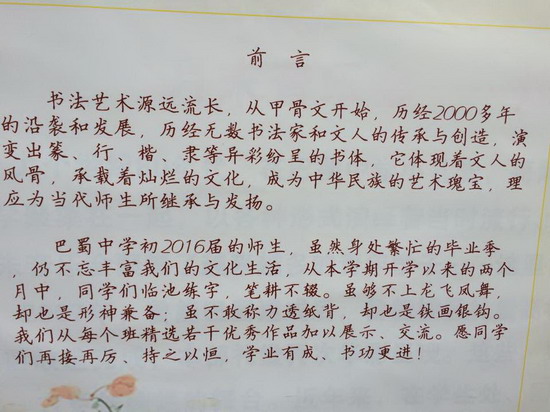 前 言
书法艺术源远流长，从甲骨文开始，历经2000多年
的沿袭和发展，历经无数书法家和文人的传承与创造，演
变出篆、行、楷、隶等异彩纷呈的书体，它体现着文人的
风骨，承载着灿烂的文化，成为中华民族的艺术瑰宝，理
应为当代师生所继承与发扬。
巴蜀中学初2016届的师生，虽然身处繁忙的毕业季
，仍不忘丰富我们的文化生活，从本学期开学以来的两个
月中，同学们临池练字，笔耕不辍。虽够不上龙飞凤舞，
却也是形神兼备；虽不敢称力透纸背，却也是铁画银钩。
我们从每个班精选若干优秀作品加以展示、交流。愿同学
们再接再厉、持之以恒，学业有成、书功更进！